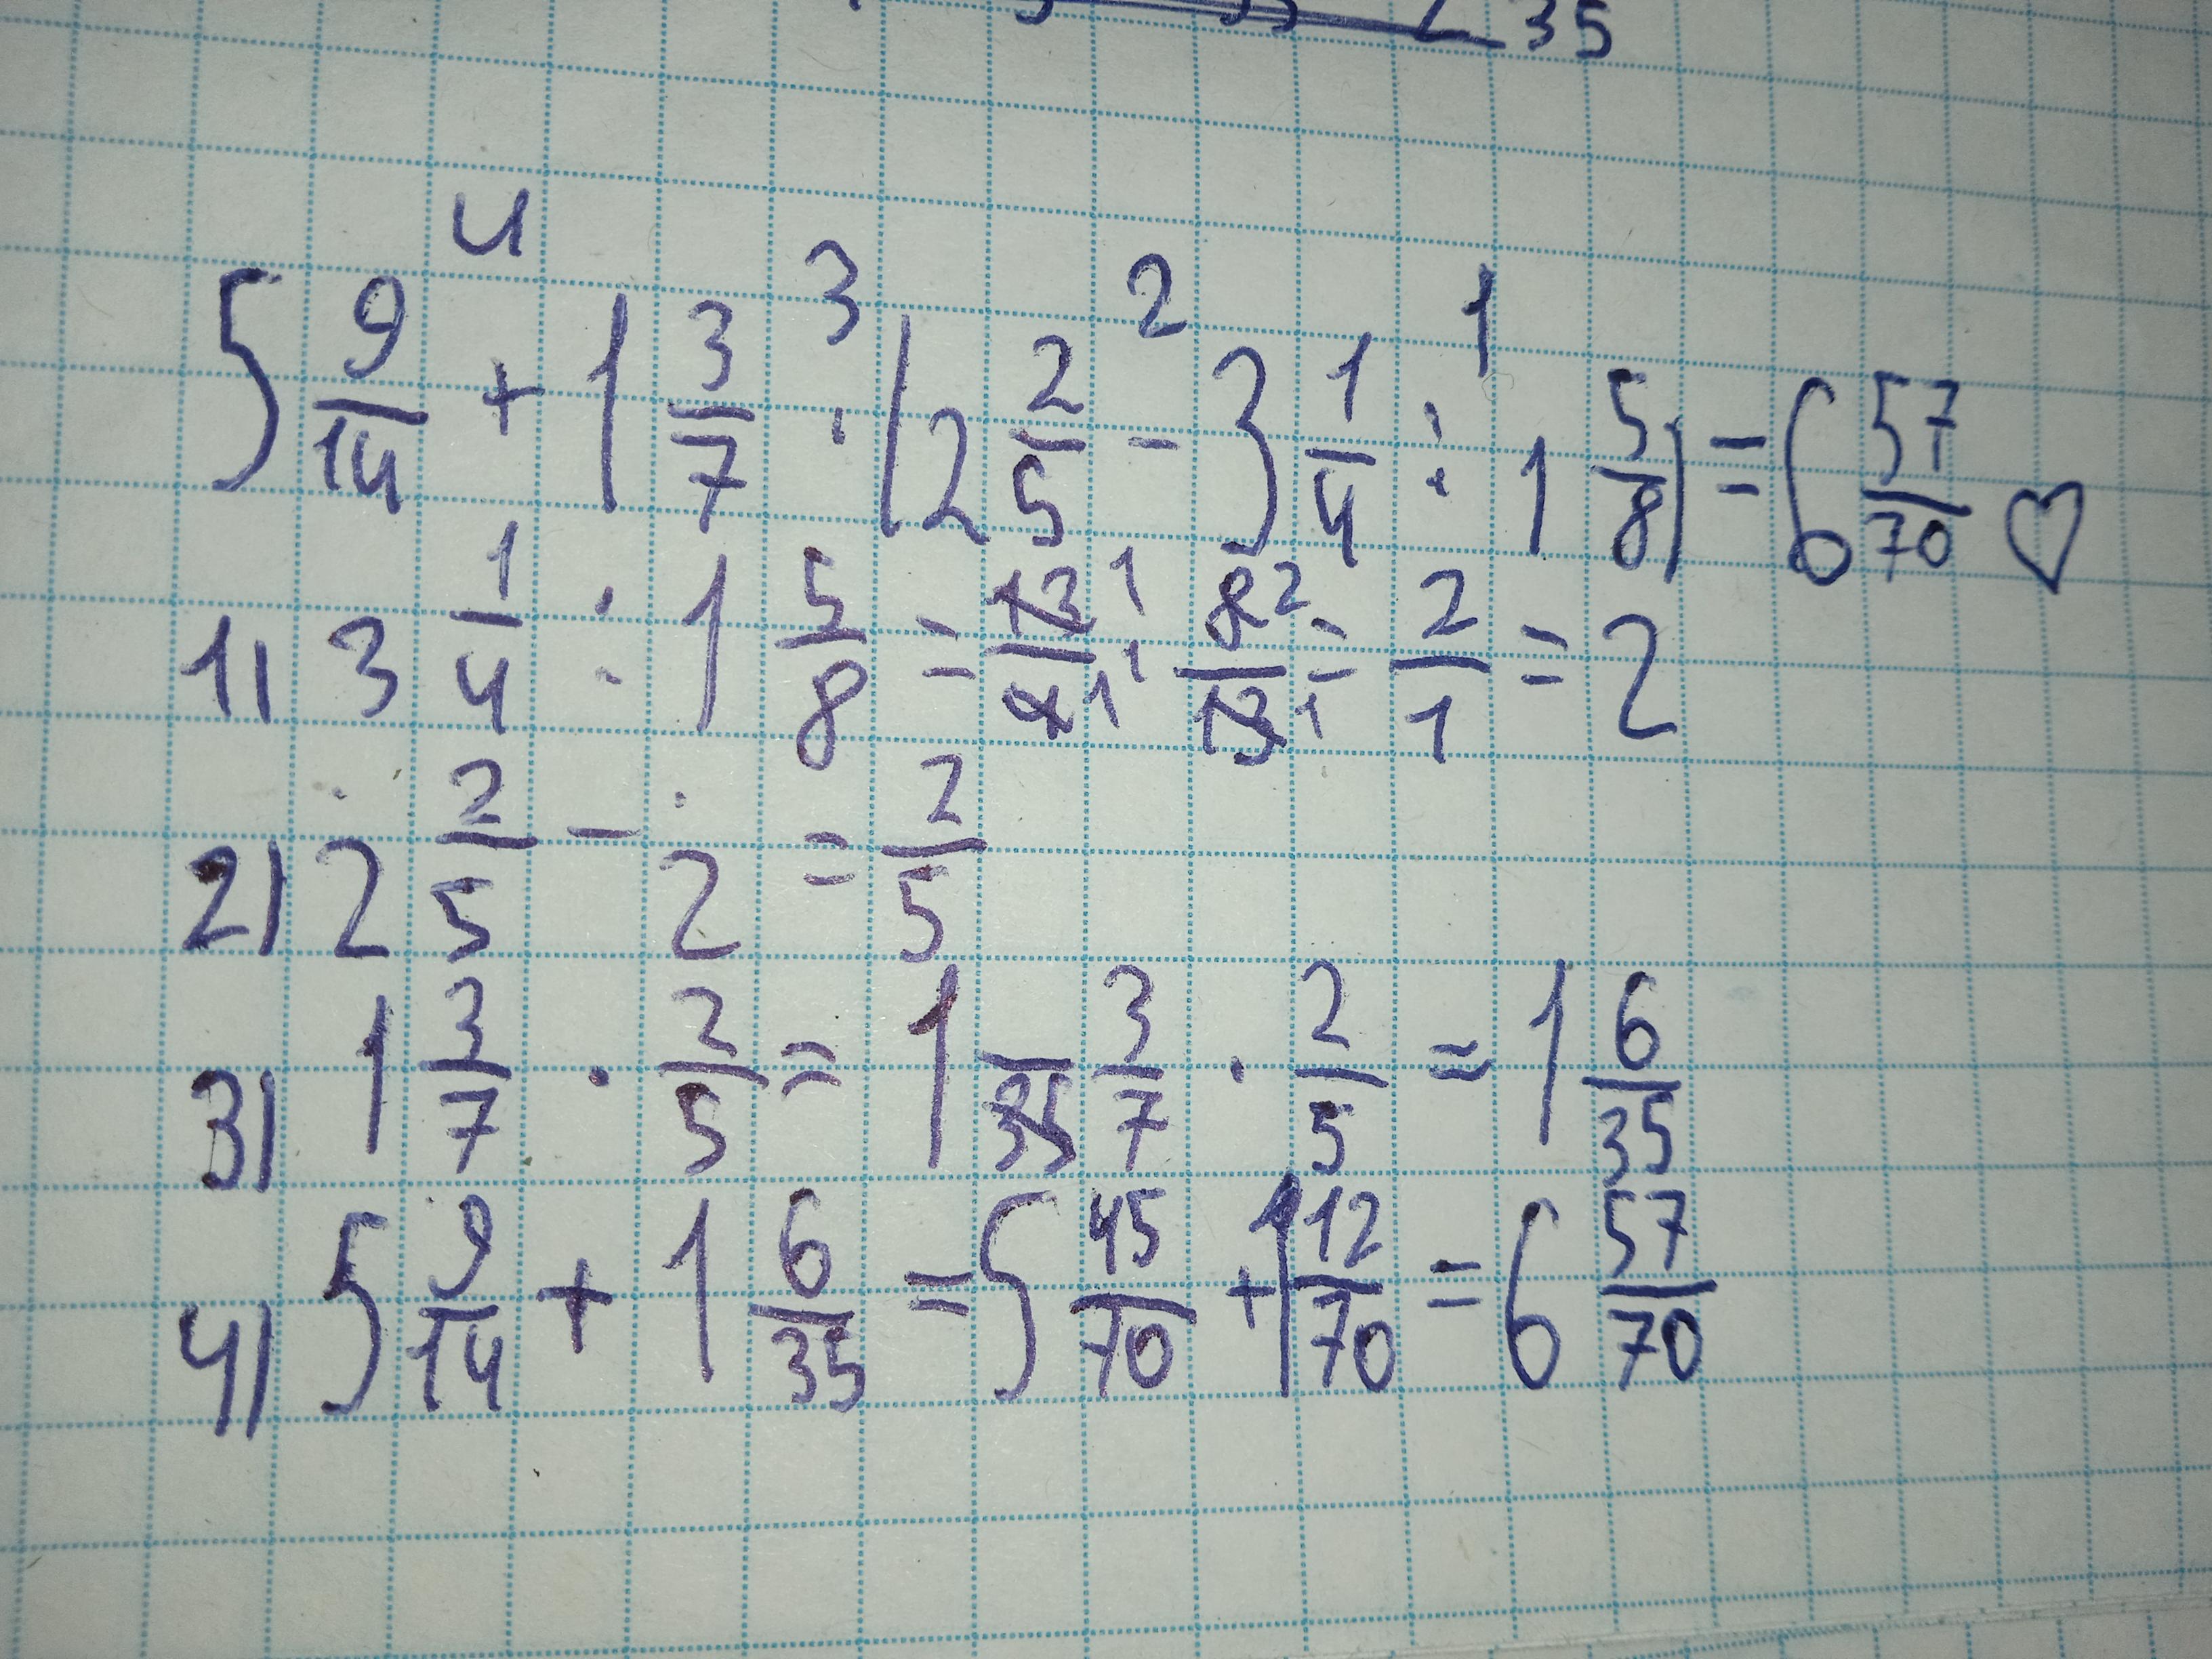 35
4 3 2 1
5 9/14 + 1 3/7 · (2 2/5 - 3 1/4 : 1 5/8) = 6 57/70 ♡
1) 3 1/4 : 1 5/8 = 13 1/4 1 · 8 2/13 1 = 2/1 = 2
2) 2 2/5 - 2 = 2/5
3) 1 3/7 · 2/5 = 1 3/7 · 2/5 = 1 6/35
4) 5 9/14 + 1 6/35 = 5 45/70 + 1 12/70 = 6 57/70